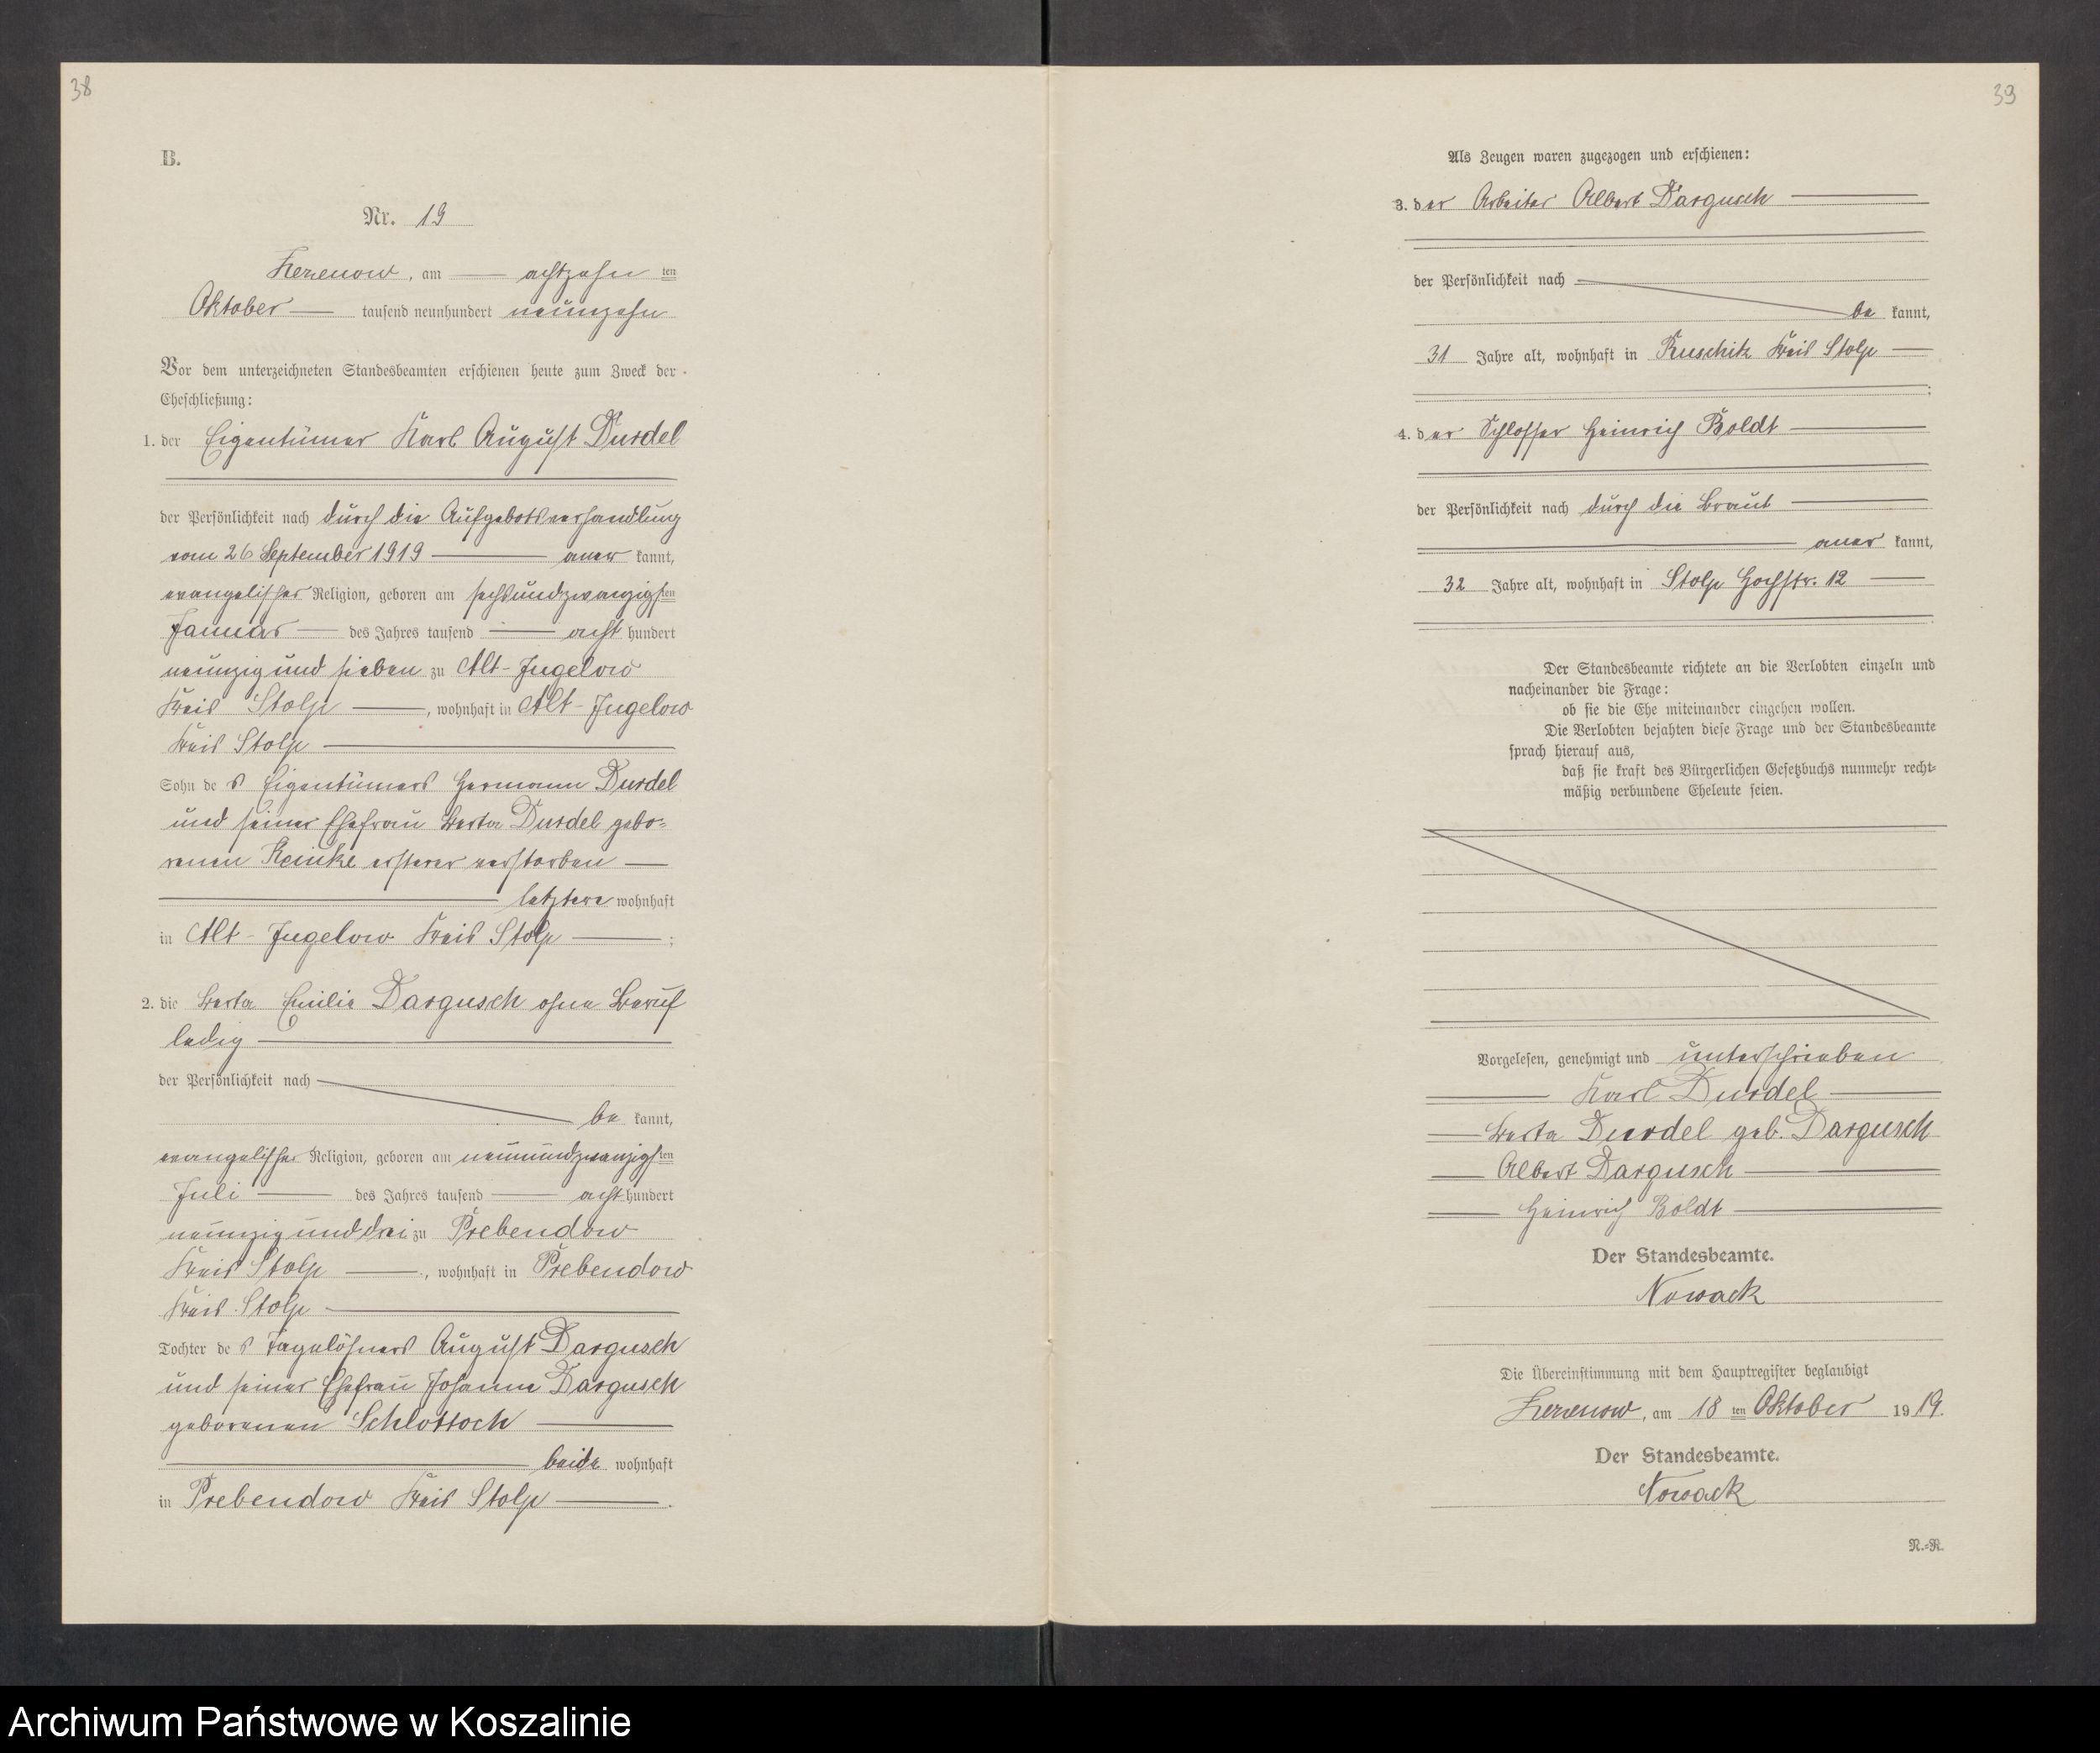 38
B.
Nr. 19
Zezenow, am achtzehn ten
Oktober tausend neunhundert neunzehn
Vor dem unterzeichneten Standesbeamten erschienen heute zum Zweck der
Eheschließung:
1. der Eigentümer Karl August Durdel
der Persönlichkeit nach durch die Aufgebotsverhandlung
vom 26 September 1919 aner kannt,
evangelischer Religion, geboren am sechsundzwanzigsten
Januar des Jahres tausend acht hundert
neunzig und sieben zu Alt-Jugelow
Kreis Stolp, wohnhaft in Alt-Jugelow
Kreis Stolp
Sohn de s Eigentümers Hermann Durdel
und seiner Ehefrau Berta Durdel gebo=
renen Reinke ersterer verstorben
letztere wohnhaft
in Alt-Jugelow Kreis Stolp;
2. die Berta Emilie Dargusch ohne Beruf
ledig
der Persönlichkeit nach
be kannt,
evangelischer Religion, geboren am neunundzwanzigsten
Juli des Jahres tausend acht hundert
neunzig und drei zu Prebendow
Kreis Stolp, wohnhaft in Prebendow
Kreis Stolp
Tochter de s Tagelöhners August Dargusch
und seiner Ehefrau Johanna Dargusch
geborenen Schlottoch
beide wohnhaft
in Prebendow Kreis Stolp.
39
Als Zeugen waren zugezogen und erschienen:
3. der Arbeiter Albert Dargusch
der Persönlichkeit nach
be kannt,
31 Jahre alt, wohnhaft in Ruschitz Kreis Stolp;
4. der Schlosser Heinrich Boldt
der Persönlichkeit nach durch die Braut
aner kannt,
32 Jahre alt, wohnhaft in Stolp Hochstr. 12
Der Standesbeamte richtete an die Verlobten einzeln und
nacheinander die Frage:
ob sie die Ehe miteinander eingehen wollen.
Die Verlobten bejahten diese Frage und der Standesbeamte
sprach hierauf aus,
daß sie kraft des Bürgerlichen Gesetzbuchs nunmehr recht=
mäßig verbundene Eheleute seien.
Vorgelesen, genehmigt und unterschrieben
Karl Durdel
Berta Durdel geb. Dargusch
Albert Dargusch
Heinrich Boldt
Der Standesbeamte.
Nowack
Die Übereinstimmung mit dem Hauptregister beglaubigt
Zezenow, am 18 ten Oktober 1919.
Der Standesbeamte.
Nowack
N.=R.
Archiwum Państwowe w Koszalinie